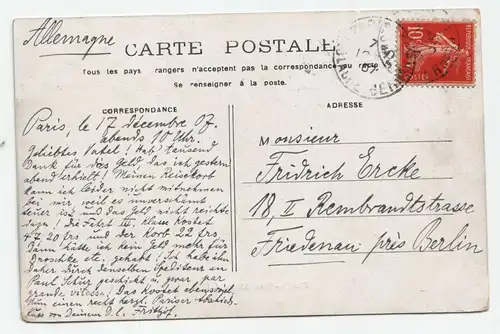 Allemagne
CARTE POSTALE
Tous les pays rangers n'acceptent pas la correspondance au recto
Se renseigner à la poste.
CORRESPONDANCE
Paris, le 17 décembre 07.
abends 10 Uhr.
Geliebtes Vatel! Hab' tausend
Dank für dies Geld, das ich gestern
abend erhielt! Meinen Reisekorb
kann ich leider nicht mitnehmen
bei mir, weil es unverschämt
teuer ist und das Geld nicht reichte
dazu! Die Fahrt III. klasse kostet
47.20 frs und der Korb 22 frs
Dann hätte ich kein Geld mehr für
Droschke etc. gehabt. Ich habe ihn
daher durch denselben Spediteur an
Paul Schür geschickt u. zwar, par
grande vitesse. Das kostet ebensoviel
Nun einen recht herzl. Pariser Abschieds-
kuss von Deinem d. l. Fritzjof.
ADRESSE
Monsieur
Fridrich Ercke
18, II Rembrandtstrasse
Friedenau près Berlin
REPUBLIQUE FRANÇAISE
10
POSTES